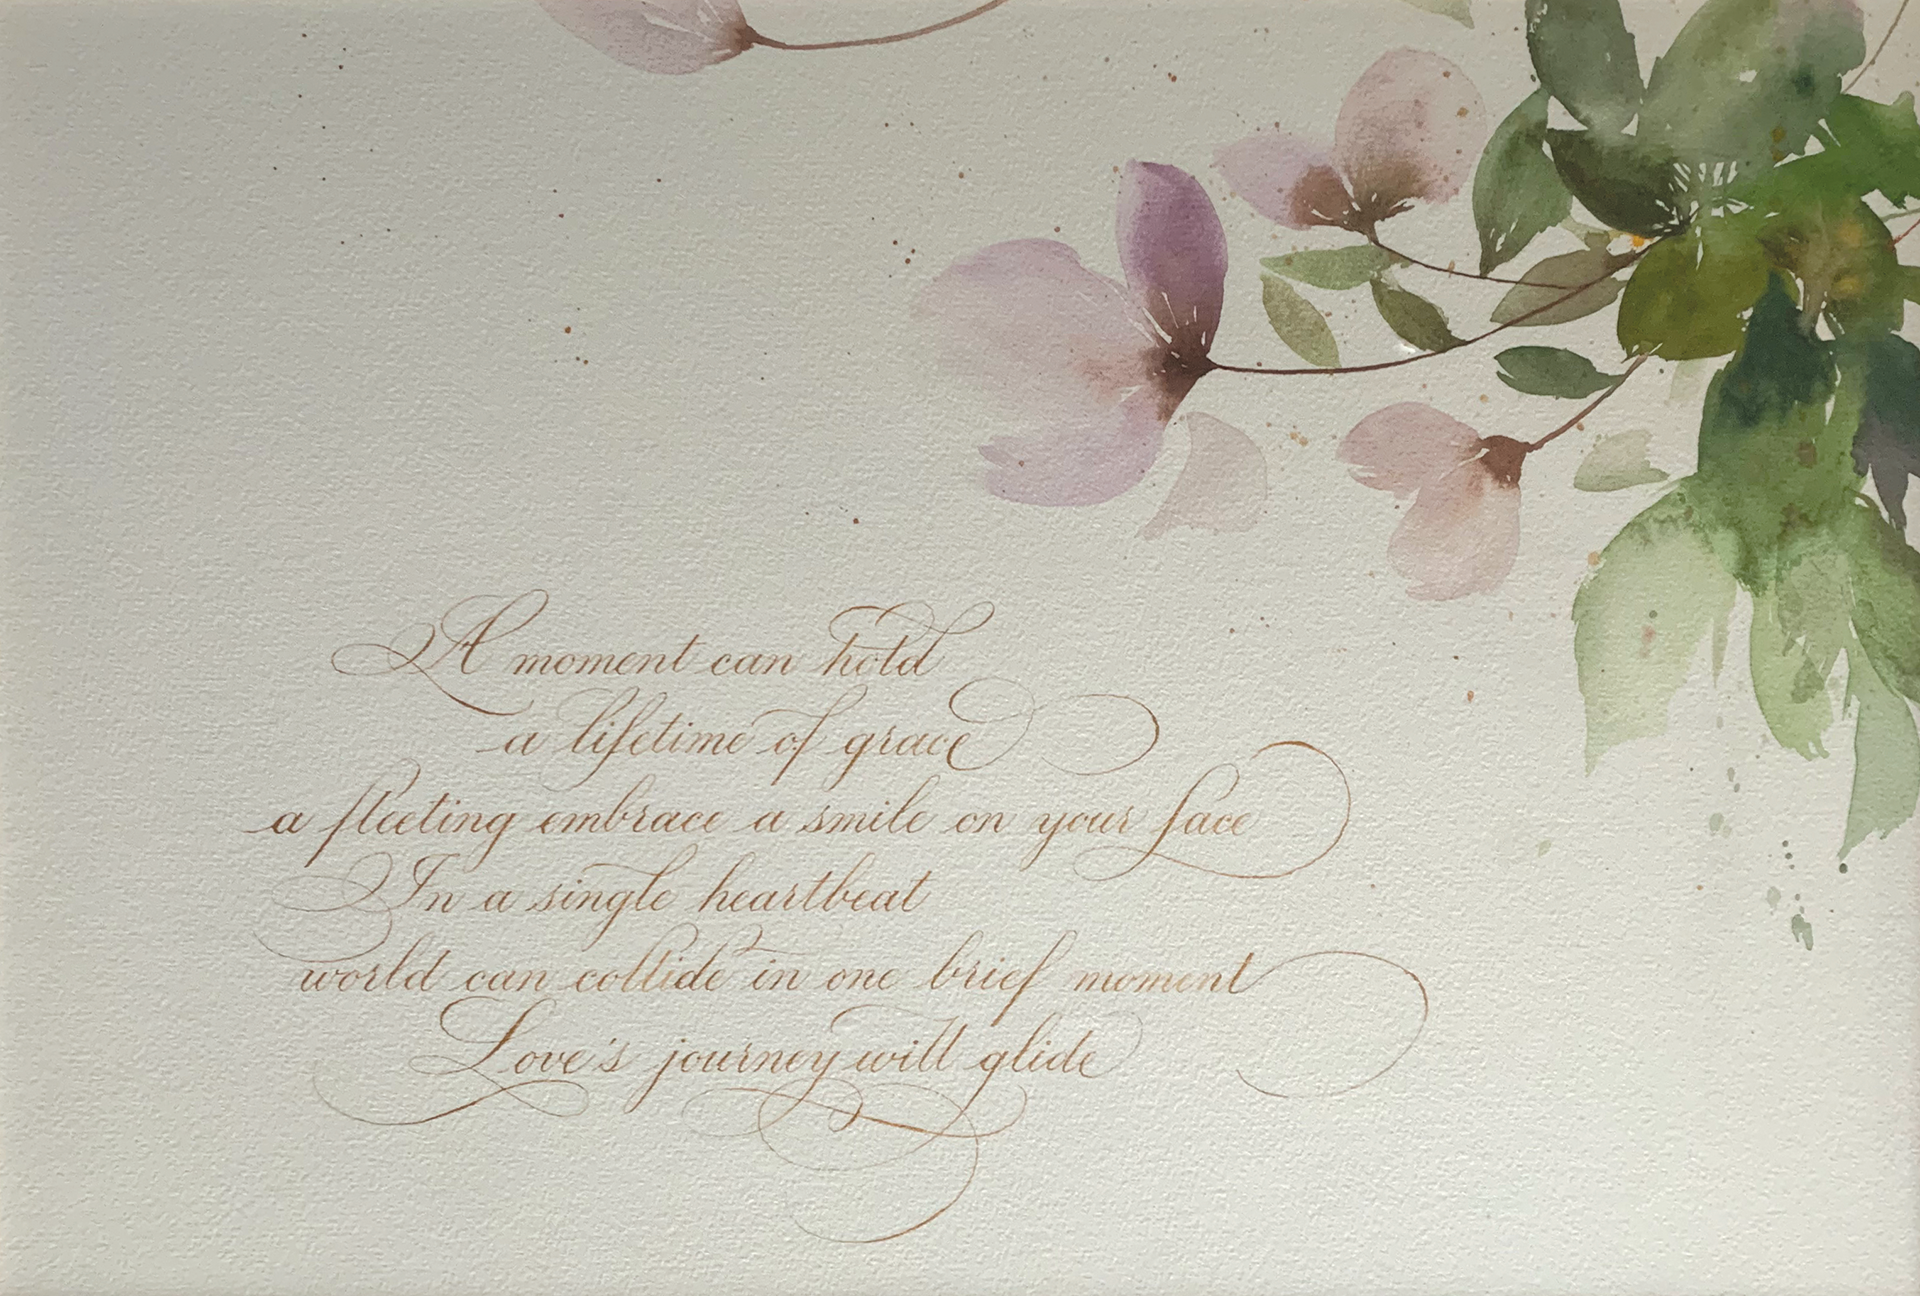 A moment can hold
a lifetime of grace
a fleeting embrace a smile on your face
In a single heartbeat
world can collide in one brief moment
Love's journey will glide